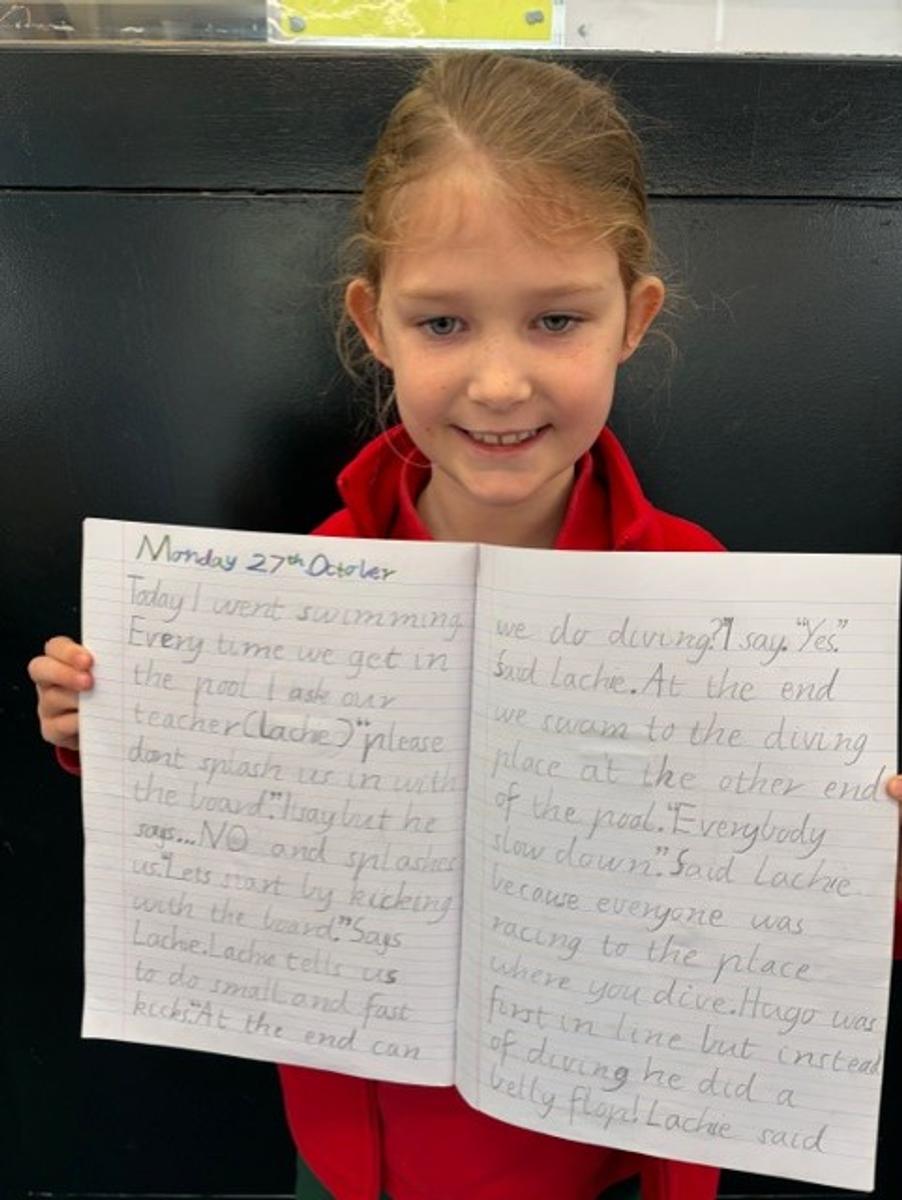 Monday 27th October
Today I went swimming
Every time we get in
the pool I ask our
teacher(lache)"please
dont splash us in with
the board."I say but he
says...NO and splashes
us."Lets start by kicking
with the board."Says
Lachie.Lachie tells us
to do small and fast
kicks."At the end can
we do diving?"I say. "Yes."
Said Lachie. At the end
we swam to the diving
place at the other end
of the pool. "Everybody
slow down". Said Lachie
because everyone was
racing to the place
where you dive. Hugo was
first in line but instead
of diving he did a
belly flop! Lachie said